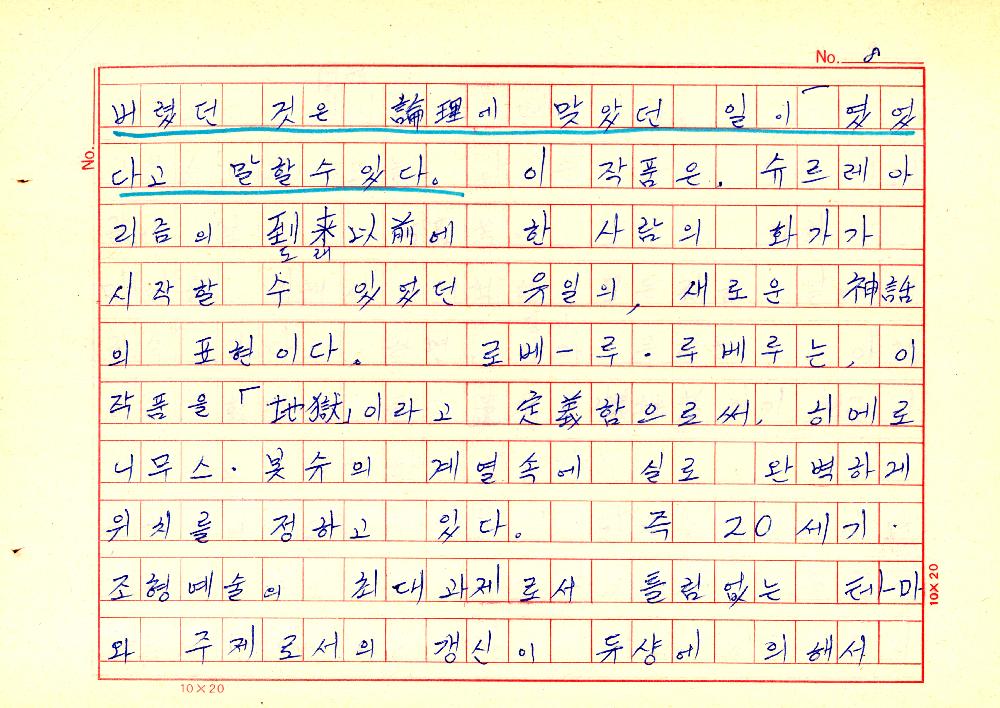 No. 8
버렸던 것은 論理에 맞았던 일이 였었
다고 말할수있다. 이 작품은, 슈르레아
리즘의 到来以前에 한 사람의 화가가
도 래
시작할 수 있었던 유일의, 새로운 神話
의 표현이다. 로베-루·루베루는, 이
작품을 「地獄」이라고 定義함으로써, 히에로
니무스·봇슈의 계열속에 실로 완벽하게
위치를 정하고 있다. 즉 20세기·
조형예술의 최대과제로서 틀림없는 테-마
와 주제로서의 갱신이 듀샹에 의해서
No.
10×20
10×20